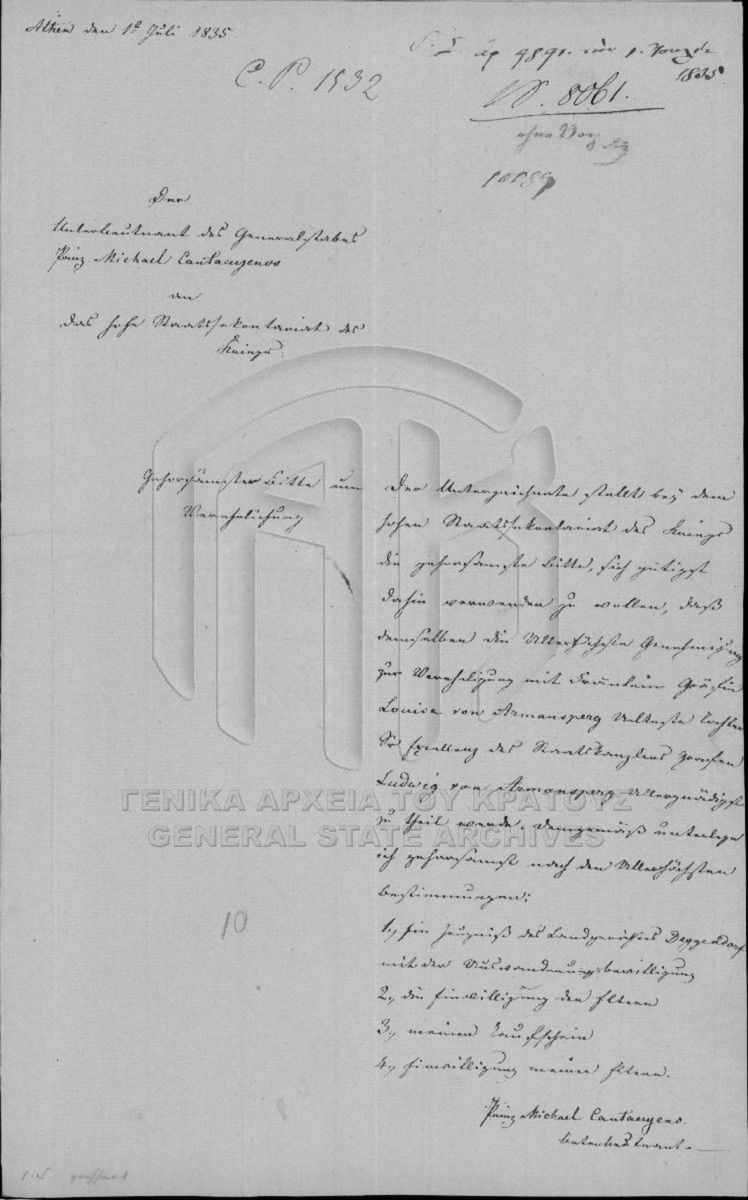 Athen den 1ten Juli 1835.
C. P. 1532
9891. 1.
1835
N. 8061.
ohne
Der
Unterlieutnant des Generalstabes
Prinz Michael Cantacuzenos
an
das hohe Staatssekretariat des
Krieges.
Gehorsamster Bitte um
Verehelichung
Der Unterzeichnete stellt bey dem
hohen Staatssekretariat des Krieges
die gehorsamste Bitte, sich gütigst
dahin verwenden zu wollen, daß
demselben die Allerhöchste Genehmigung
zur Verehelichung mit Fräulein Gräfin
Louise von Armansperg Aelteste Tochter
Sr Excellenz des Staatskanzlers Grafen
Ludwig von Armansperg Allergnädigst
zu theil werde. Demgemäß unterlege
ich gehorsamst nach den Allerhöchsten
Bestimmungen:
1., Ein Zeugniß des Landgerichtes Deggendorf
mit der Auswanderungsbewilligung
2., die Einwilligung der Eltern
3., meinen Taufschein
4., Einwilligung meiner Eltern.
Prinz Michael Cantacuzenos.
Unterlieutnant.
10
ΓΕΝΙΚΑ ΑΡΧΕΙΑ ΤΟΥ ΚΡΑΤΟΥΣ
GENERAL STATE ARCHIVES